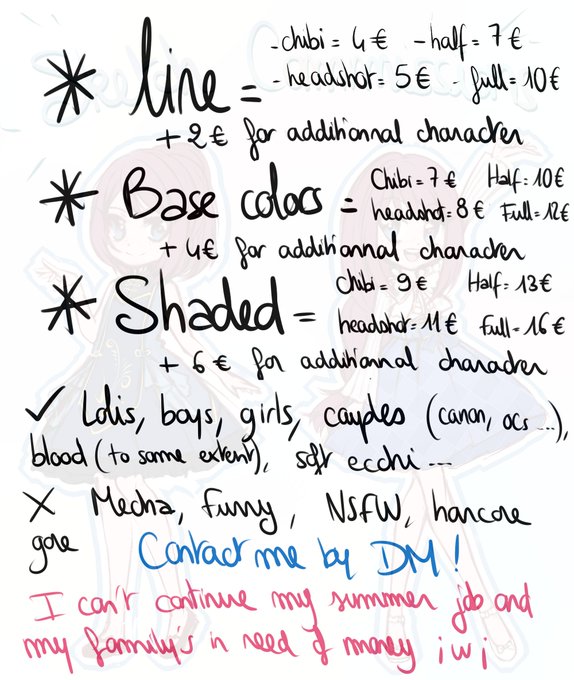 - chibi = 4 € - half = 7 €
* line = - headshot = 5 € - full = 10 €
+ 2 € for additionnal character
Chibi = 7 € Half = 10 €
* Base colors = headshot = 8 € Full = 12 €
+ 4 € for additionnal character
Chibi = 9 € Half = 13 €
* Shaded = headshot = 11 € Full = 16 €
+ 6 € for additionnal character
✓ Lolis, boys, girls, couples (canon, ocs ...),
blood (to some extent), soft ecchi ...
X Mecha, Furry, NSFW, harcore
gore Contact me by DM!
I can't continue my summer job and
my family's in need of money ; w ;